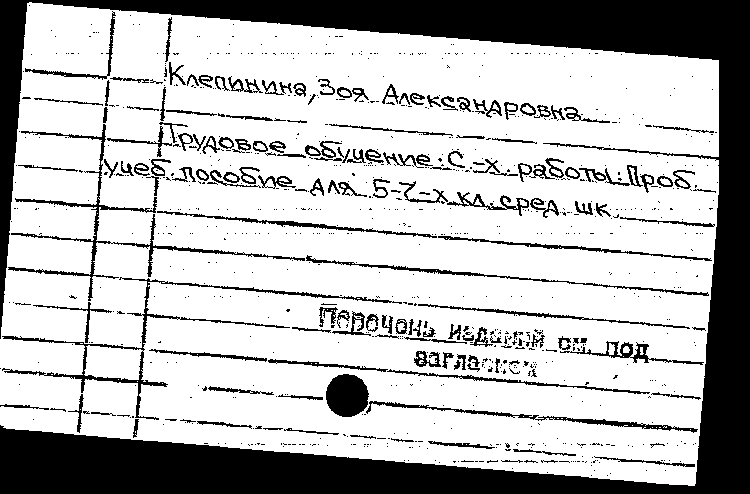 Клепинина, Зоя Александровна
Трудовое обучение: С.-х. работы: Проб.
учеб. пособие для 5-7-х кл. сред. шк.
Перечень изданий см. под
заглавием